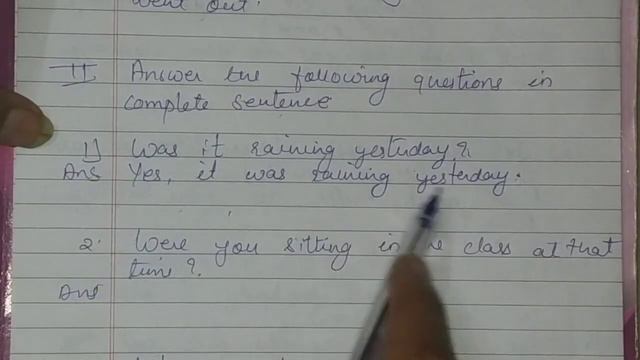 went out.
II Answer the following questions in
complete sentence
1) Was it raining yesterday?
Ans Yes, it was raining yesterday.
2. Were you sitting in the class at that
time?
Ans